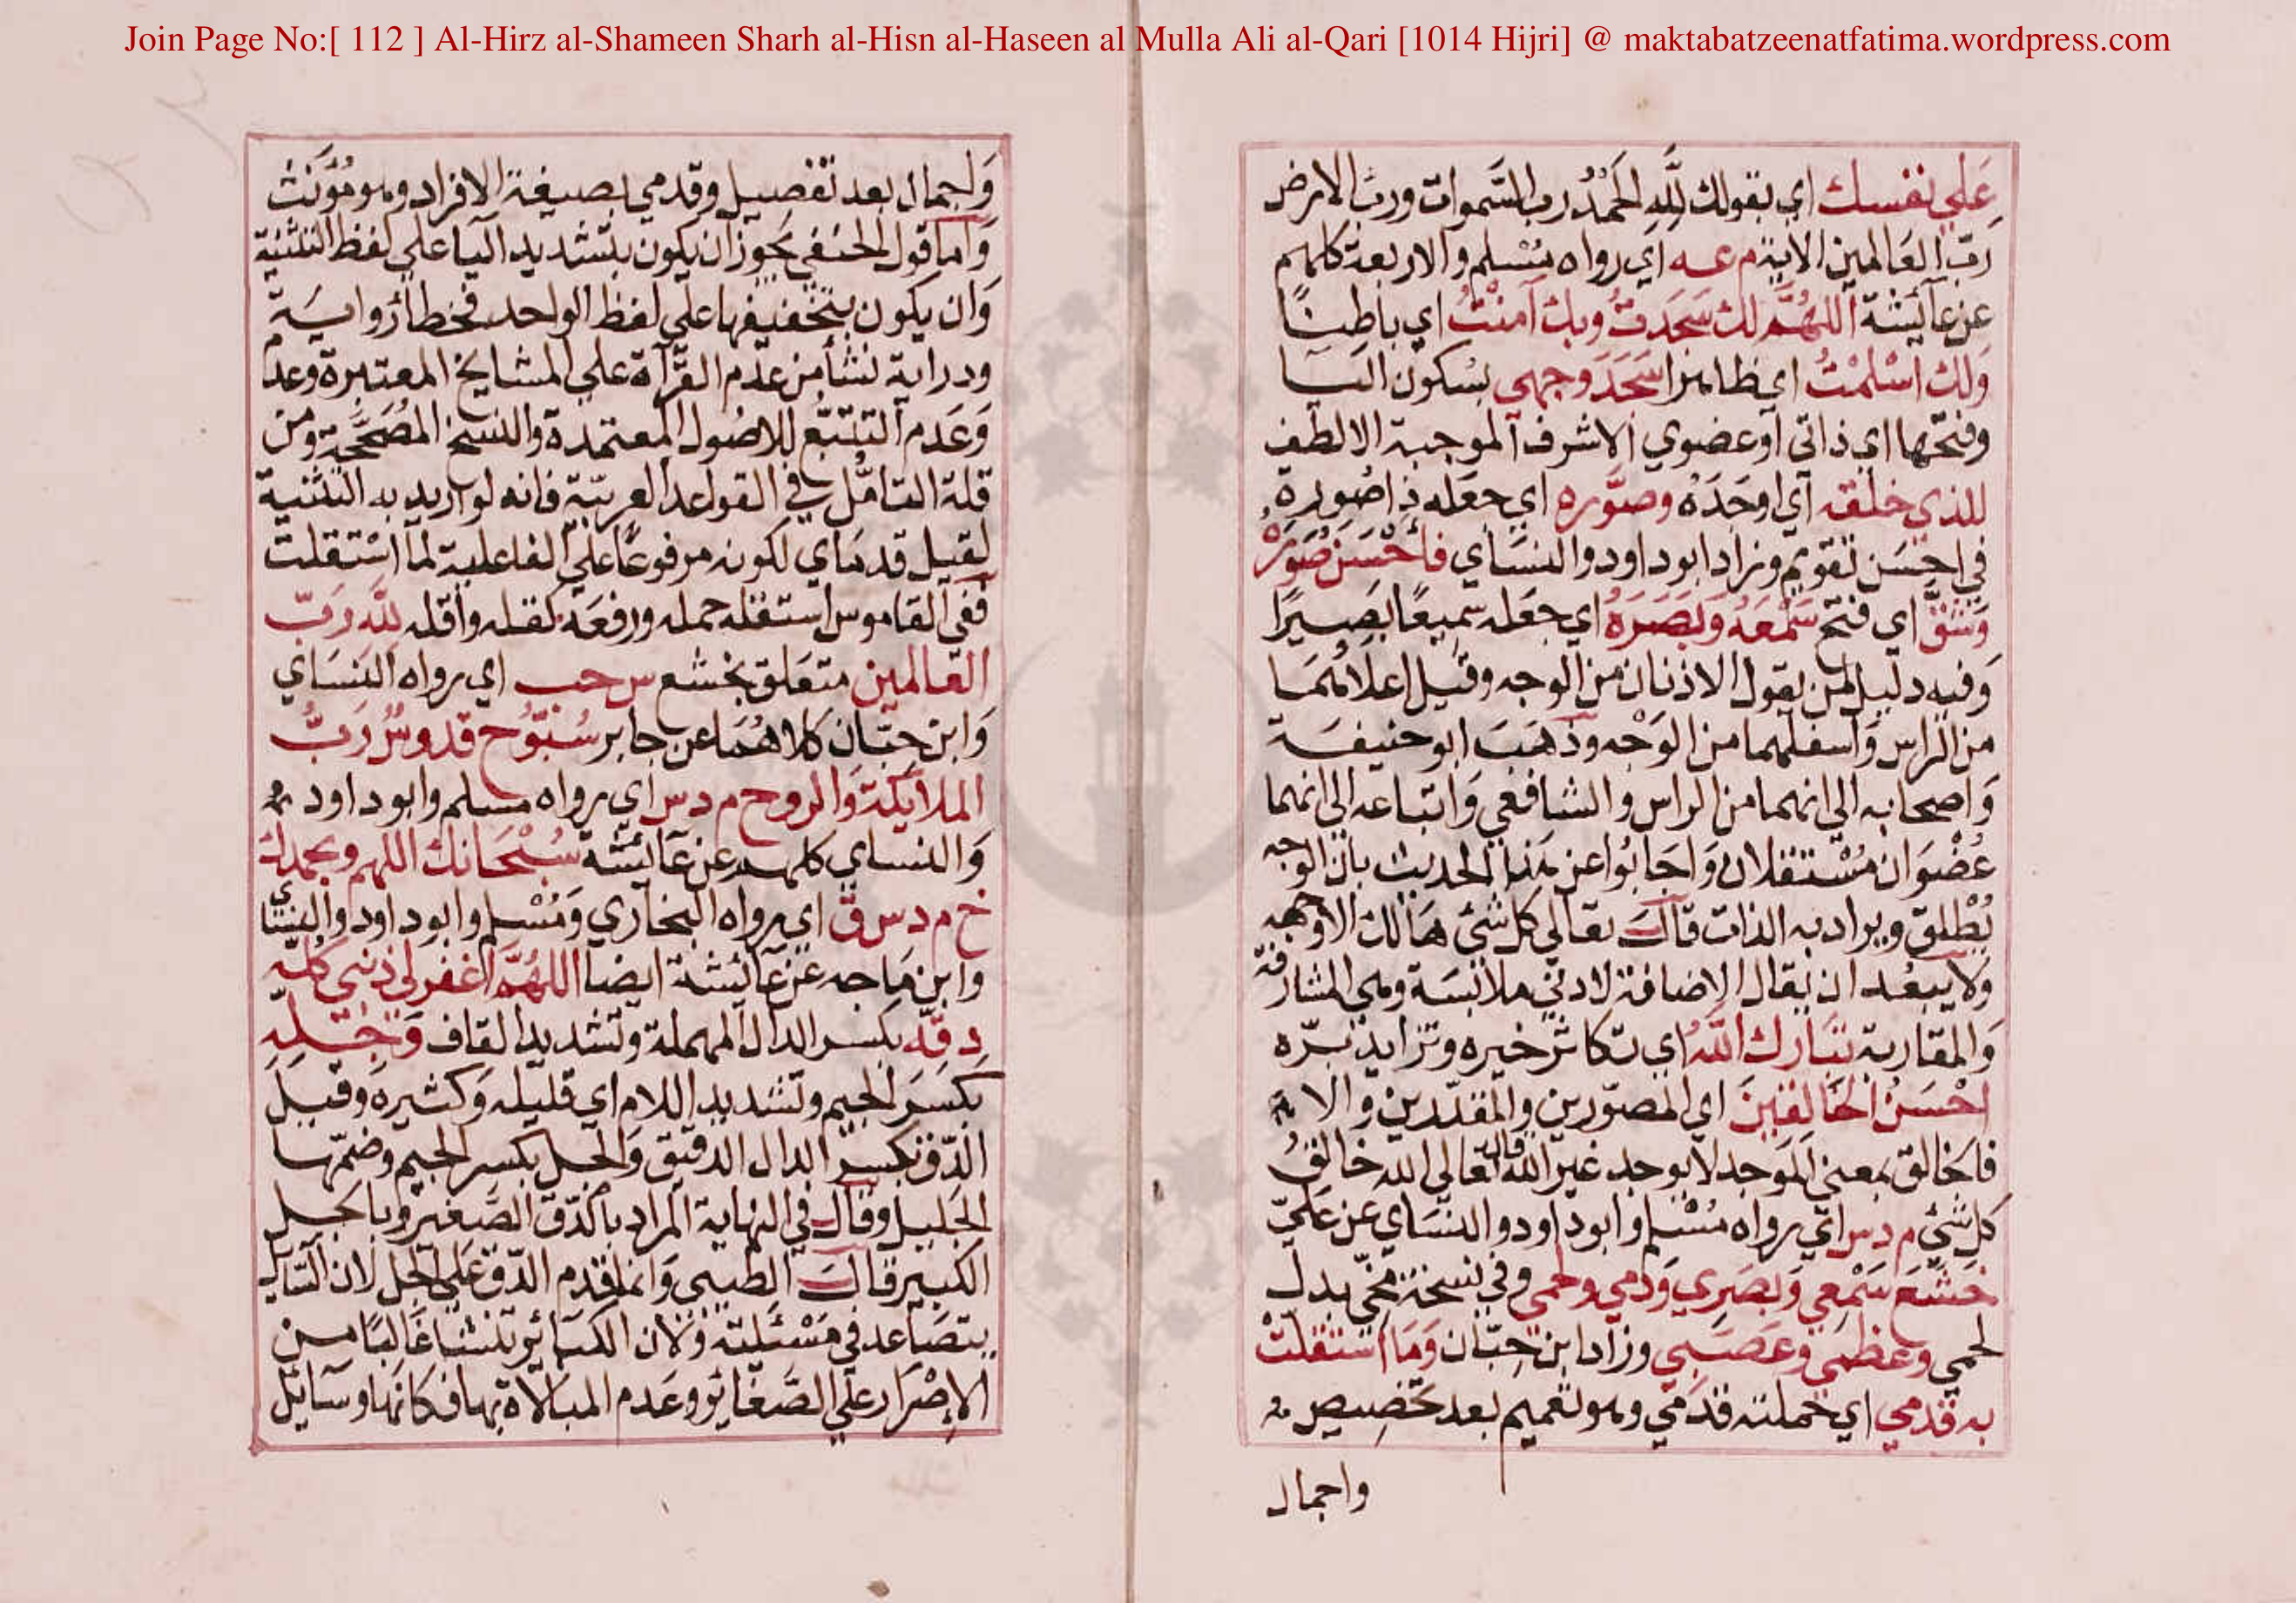 Join Page No:[ 112 ] Al-Hirz al-Shameen Sharh al-Hisn al-Haseen al Mulla Ali al-Qari [1014 Hijri] @ maktabatzeenatfatima.wordpress.com
عَلي نفسك اي بقولك لِلّهِ الحَمْدُ رب السَّموات ورب الارض
رَبّ العَالمين الاية م عـه اي رواه مُسْلم والاربعة كلهم
عن عَآئيشة اللهُمَّ لك سَجَدتُ وبك آمنْتُ اي باطِنًا
وَلك اسْلمْتُ اي ظاهرا سَجَدَ وَجهى بسُكون اليَا
وفتحها اي ذاتى اوعضوي الاشرف الموجبة الالطف
للذي خلقه اي اوجَدَهُ وصوَّره اي جعَله ذا صُورة
في احسَن تقويم وزاد ابو داود والنسَاي فأحْسَنَ صُوَرَهُ
وَشقَّ اي فتح سَمْعَهُ وَبَصَرَهُ اي جعَله سميعًا بَصيرًا
وَفيه دليل لمن يقول الاذنان من الوجه وقيل اعلاهُمَا
من الراس وَاسفلهما من الوَجْه وذهَبَ ابو حنيفَة
وَاصحابه الى انهما من الراس والشافعي وَاتباعه الى انهما
عُضْوَان مُسْتقلان وَاجَابُوا عن هَذا الحديث بان الوجه
يُطْلق ويراد به الذات قالَ تعَالي كل شئ هَالك الا وجهه
وَلا يبعُد ان يقال الاضافة لادنى ملابسَة وهي المشارفة
وَالمقاربة تبَارك اللهُ اي تكاثر خيره وتزايد برّه
احْسَنُ الخَالقينَ اي المصَوّرين والمقدّرين والا
فالخالق بمعني الموَجد لا يوجد غير الله قال تعالي الله خالقُ
كل شئ م د س اي رواه مُسْلم وابو داود والنسَاي عن عَليّ
خَشَعَ سَمْعي وَبصَري وَدمي ولحمى وفي نسخة مخّي بدل
لحمي وعظمي وَعصَبي وزاد ابن حِبّان وَمَا استقلتْ
به قدمي اي حملته قدَمي وهو تعميم بعد تخصِيص
واجمال
وَاجمال بعد تفصيل وقدمي بصيغة الافراد وهو مُؤنث
وَاما قول الحنفي يجَوز ان يكون بتشديد اليا علي لفظ التثنية
وَان يكون بتخفيفها علي لفظ الواحد فخطا رواية
ودراية نشأ من عدم القرَّآة علي المشايخ المعتبرة وعدم
وَعَدم التتبّع للاصُول المعتمدة والنسخ المُصَحَّحَة ومن
قلة التامُّل في القواعد العربيّة فانه لو اريد به التثنية
لقيل قدمَاي لكونه مرفوعًا علي الفاعلية لما اسْتقلت
ففي القاموس استقله حمله ورفعَه كقله واقله لله رَبّ
العَالمين متعَلق بخشع س حب اي رواه النسَاي
وَابن حبّان كلاهُمَا عن جابر سُبّوُح قدوسٌ رَبُّ
الملآيكة وَالروح م د س اي رواه مسلم وابو داود
وَالنساي كلهم عن عَآئيشة سُبْحَانك اللهم وبحمدك
خ م د س ق اي رواه البخاري وَمُسْلم وابو داود والنسَاي
وابن مَاجه عن عَآئيشة ايضا اللهُمَّ اغفرلى ذنبى كُله
دِقّه بكسر الدال المهملة وتشديد القاف وَجِلّهِ
بكسر الجيم وتشديد اللام اي قليله وَكثيره وَقيل
الدّق بكسر الدال الدقيق وَالجل بكسر الجيم وضمّها
الجَليل وقال في النهاية المراد بالدّق الصَّغير وَبالجل
الكبير قال الطيبي وَانما قدم الدّق عَلي الجل لان السَّايل
يتصَاعد في مَسْئلته وَلان الكبَائر تنشأ غَالبًا من
الاِصْرَار علي الصَّغايُر وعَدم المبالاة بها فكانها وسَايل